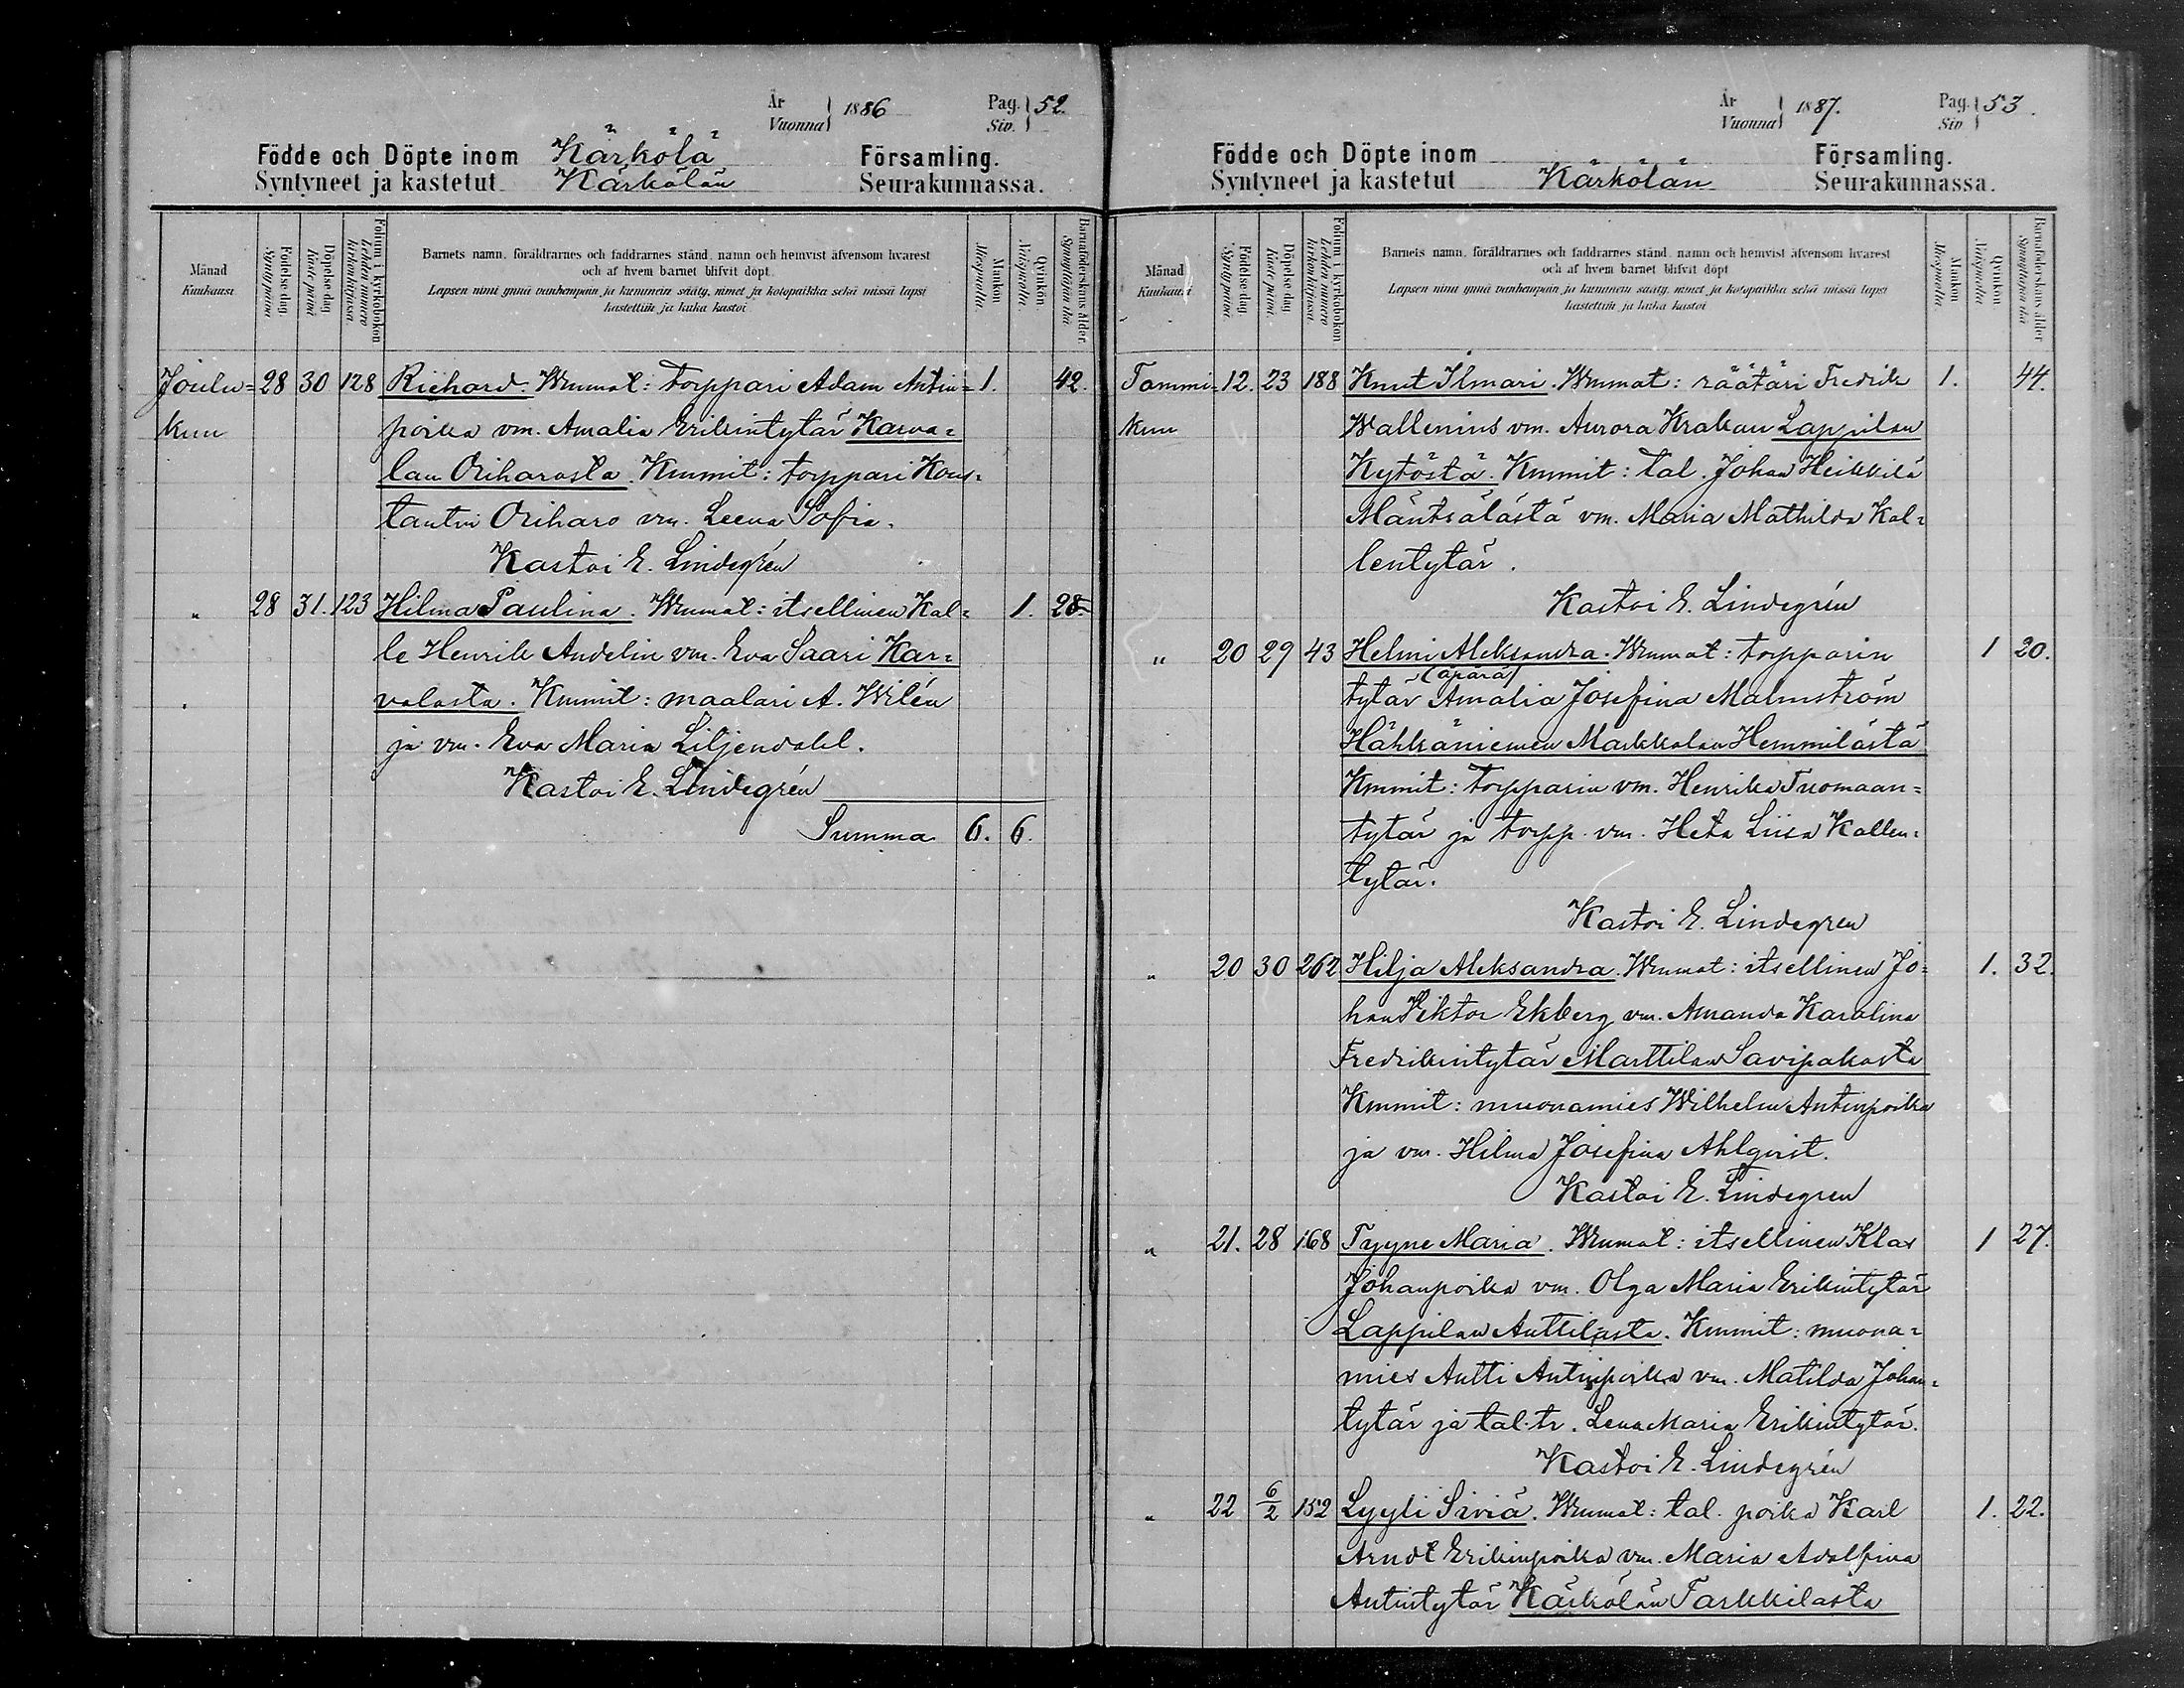 År
Vuonna
1886
Pag.
Siv.
52.
Födde och Döpte inom Kärkölä Församling.
Syntyneet ja kastetut Kärkölän Seurakunnassa.
Månad
Kuukausi
Födelsedag
Syntypäivä
Döpelsedag
Kastepäivä
Folium i kyrkobokon
Lehden numero
kirkonkirjassa
Barnets namn, föräldrarnes och faddrarnes stånd, namn och hemvist äfvensom hvarest
och af hvem barnet blifvit döpt.
Lapsen nimi ynnä vanhempain ja kummein sääty, nimet ja kotopaikka sekä missä lapsi
kastettiin ja kuka kastoi
Mankön.
Miespuolta.
Qvinkön.
Naispuolta.
Barnaföderskans ålder
Synnyttäjän ikä
Joulu= 28 30 128 Richard. Wmmat: torppari Adam Antin= 1. 42.
kuu poika vm. Amalia Erikintytär Karva=
lan Oriharosta. Kmmit: torppari Kons=
tantin Oriharo vm. Leena Sofia.
Kastoi E. Lindegrén
" 28 31. 123 Hilma Paulina. Wmmat: itsellinen Kal= 1. 28.
le Henrik Andelin vm. Eva Saari Kar=
valasta. Kmmit: maalari A. Wilén
ja vm. Eva Maria Liljendahl.
Kastoi E. Lindegrén
Summa 6. 6.
År
Vuonna
1887.
Pag.
Siv
53.
Födde och Döpte inom Församling.
Syntyneet ja kastetut Kärkölän Seurakunnassa.
Månad
Kuukausi
Födelsedag.
Syntypäivä.
Döpelsedag
Kastepäivä.
Folium i kyrkobokon
Lehden numero
kirkonkirjassa
Barnets namn, föräldrarnes och faddrarnes stånd, namn och hemvist äfvensom hvarest
och af hvem barnet blifvit döpt
Lapsen nimi ynnä vanhempain ja kummein sääty, nimet ja kotopaikka sekä missä lapsi
kastettiin ja kuka kastoi
Mankön
Miespuolta.
Qvinkön.
Naispuolta
Barnaföderskans ålder
Synnyttäjän ikä
Tammi= 12. 23 188 Knut Ilmari. Wmmat: räätäri Fredrik 1. 44.
kuu Wallenius vm. Aurora Krakau Lappilan
Kytöstä. Kmmit: tal. Johan Heikkilä
Mäntsälästä vm. Maria Mathilda Kal=
lentytär.
Kastoi E. Lindegrén
" 20 29 43 Helmi Aleksandra. Wmmat: torpparin 1 20.
(äpärä)
tytär Amalia Josefina Malmström
Hähkäniemen Markkolan Hemmilästä
Kmmit: torpparin vm. Henrika Tuomaan=
tytär ja torpp. vm. Heta Liisa Kallen=
tytär.
Kastoi E. Lindegren
" 20 30 262 Hilja Aleksandra. Wmmat: itsellinen Jo= 1. 32.
han Viktor Ekberg vm. Amanda Karolina
Fredrikintytär Marttilan Savipakasta
Kmmit: muonamies Wilhelm Antinpoika
ja vm. Hilma Josefina Ahlqvist.
Kastoi E. Lindegren
" 21. 28 168 Tyyne Maria. Wmmat: itsellinen Klas 1 27.
Johanpoika vm. Olga Maria Erikintytär
Lappilan Anttilasta. Kmmit: muona=
mies Antti Antinpoika vm. Matilda Johan=
tytär ja tal. tr. Lena Maria Erikintytär.
Kastoi E. Lindegrén
" 22 6/2 152 Lyyli Siviä. Wmmat: tal. poika Karl 1. 22.
Arndt Erikinpoika vm. Maria Adolfina
Antintytär Kärkölän Tarkkilasta